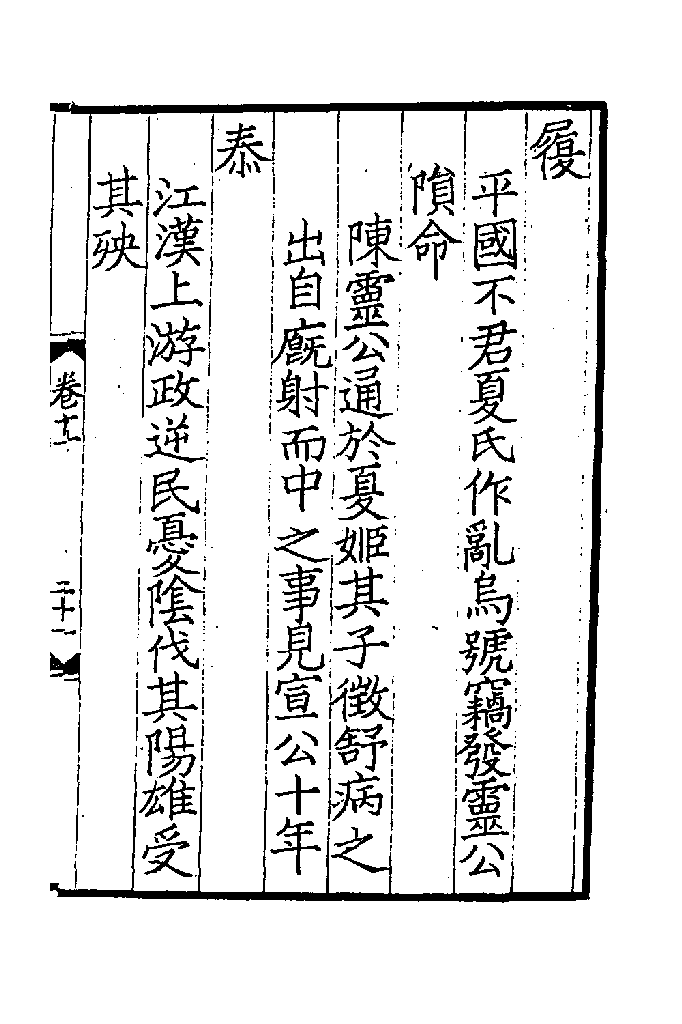 履
平國不君夏氏作亂烏號竊發靈公
隕命
陳靈公通於夏姬其子徵舒病之
出自廐射而中之事見宣公十年
泰
江漢上游政逆民憂陰伐其陽雄受
其殃
卷十二
二十一